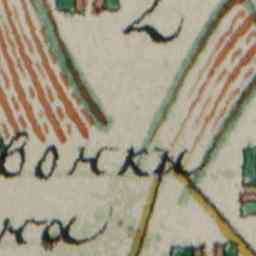 2
вонки
на